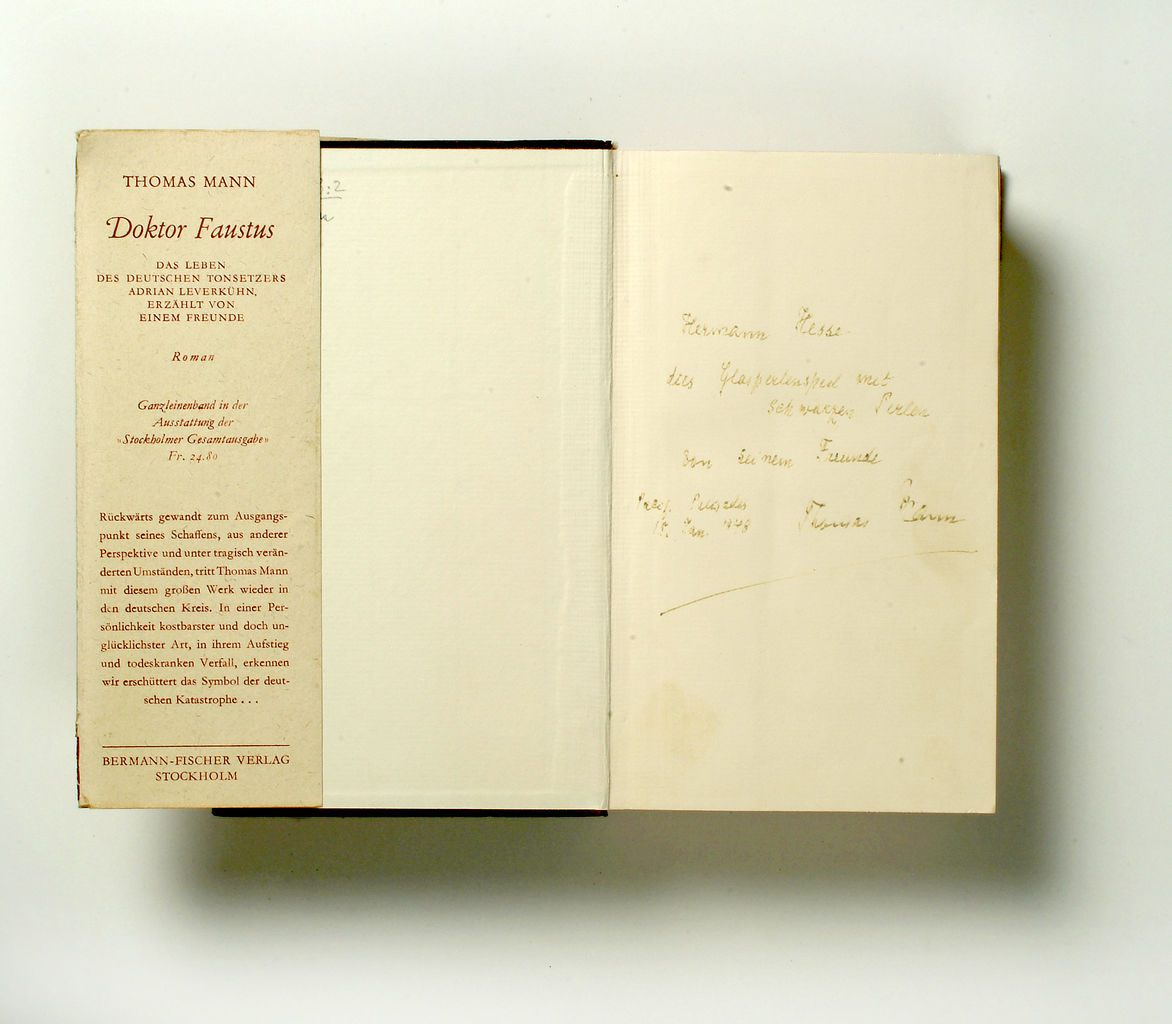 THOMAS MANN
Doktor Faustus
DAS LEBEN
DES DEUTSCHEN TONSETZERS
ADRIAN LEVERKÜHN,
ERZÄHLT VON
EINEM FREUNDE
Roman
Ganzleinenband in der
Ausstattung der
»Stockholmer Gesamtausgabe»
Fr. 24.80
Rückwärts gewandt zum Ausgangs-
punkt seines Schaffens, aus anderer
Perspektive und unter tragisch verän-
derten Umständen, tritt Thomas Mann
mit diesem großen Werk wieder in
den deutschen Kreis. In einer Per-
sönlichkeit kostbarster und doch un-
glücklichster Art, in ihrem Aufstieg
und todeskranken Verfall, erkennen
wir erschüttert das Symbol der deut-
schen Katastrophe . . .
BERMANN-FISCHER VERLAG
STOCKHOLM
Hermann Hesse
dies Glasperlenspiel mit
schwarzen Perlen
von seinem Freunde
Pacif. Palisades
Jan. 1948
Thomas Mann